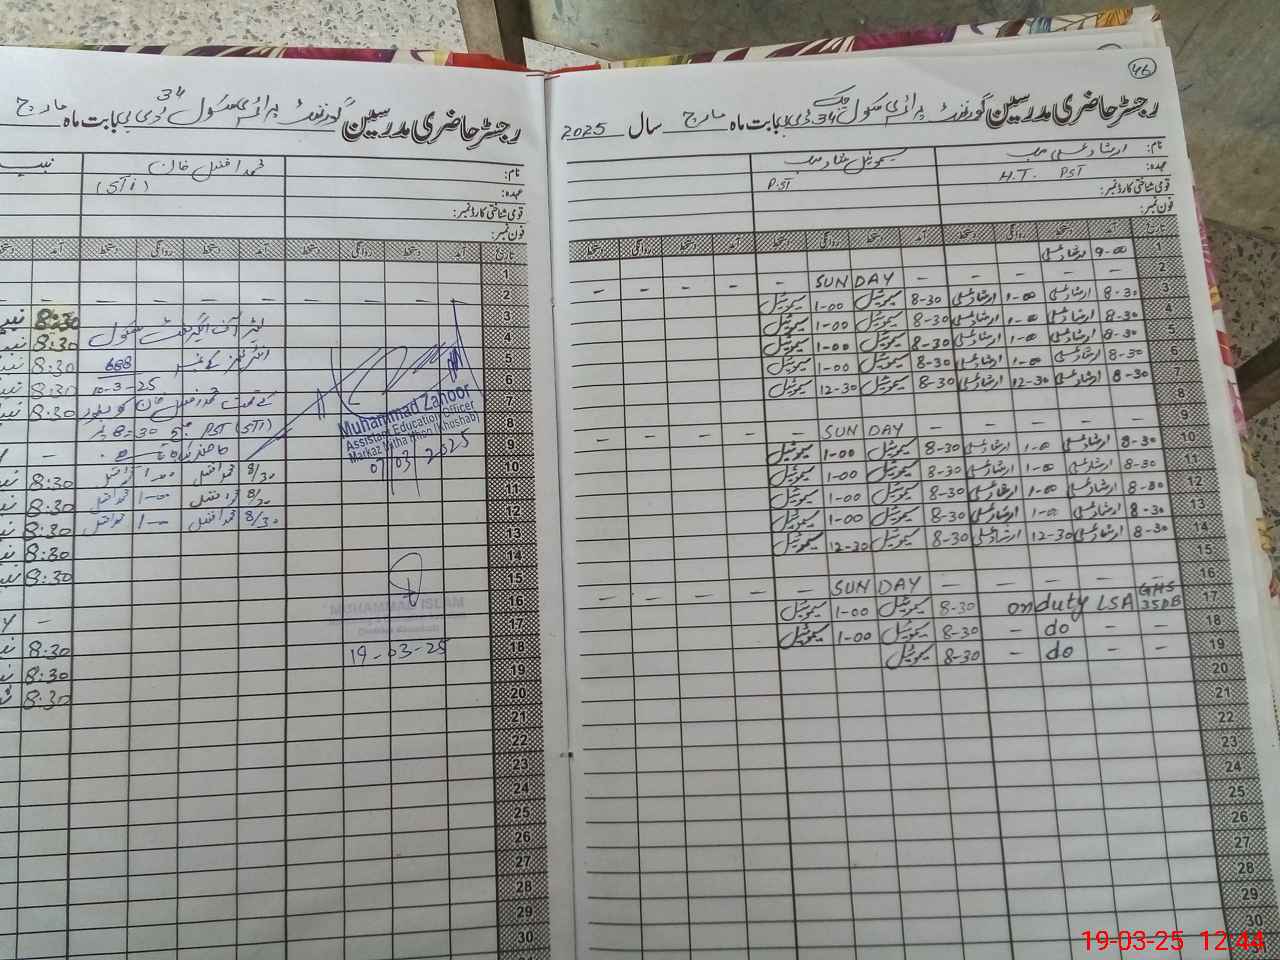 46
رجسٹر حاضری مدرسین گورنمنٹ پرائمری سکول چک 34 ڈی بی بابت ماہ مارچ سال 2025
نام: ارشاد علی صاحب
سیموئیل
عہدہ: H.T. PST
PST
قومی شناختی کارڈ نمبر:
فون نمبر:
تاریخ آمد دستخط روانگی دستخط آمد دستخط روانگی دستخط آمد دستخط روانگی دستخط
1 9-00 ارشاد علی
2 – – – – SUNDAY – – – –
3 8-30 ارشاد علی 1-00 ارشاد علی 8-30 سیموئیل 1-00 سیموئیل
4 8-30 ارشاد علی 1-00 ارشاد علی 8-30 سیموئیل 1-00 سیموئیل
5 8-30 ارشاد علی 1-00 ارشاد علی 8-30 سیموئیل 1-00 سیموئیل
6 8-30 ارشاد علی 1-00 ارشاد علی 8-30 سیموئیل 1-00 سیموئیل
7 8-30 ارشاد علی 12-30 ارشاد علی 8-30 سیموئیل 12-30 سیموئیل
8
9 – – – – SUNDAY – – – –
10 8-30 ارشاد علی 1-00 ارشاد علی 8-30 سیموئیل 1-00 سیموئیل
11 8-30 ارشاد علی 1-00 ارشاد علی 8-30 سیموئیل 1-00 سیموئیل
12 8-30 ارشاد علی 1-00 ارشاد علی 8-30 سیموئیل 1-00 سیموئیل
13 8-30 ارشاد علی 1-00 ارشاد علی 8-30 سیموئیل 1-00 سیموئیل
14 8-30 ارشاد علی 12-30 ارشاد علی 8-30 سیموئیل 12-30 سیموئیل
15
16 – – – – SUNDAY – – – –
17 on duty LSA GHS 35DB 8-30 سیموئیل 1-00 سیموئیل
18 – – do – 8-30 سیموئیل 1-00 سیموئیل
19 – – do – 8-30 سیموئیل
20
21
22
23
24
25
26
27
28
29
30
رجسٹر حاضری مدرسین گورنمنٹ پرائمری سکول 34 ڈی بی بابت ماہ مارچ
نام: محمد افضل خان
عہدہ: (STI)
قومی شناختی کارڈ نمبر:
فون نمبر:
تاریخ آمد دستخط روانگی دستخط آمد دستخط روانگی دستخط آمد دستخط
1
2 – – – – – – – – –
3 8:30
4 8:30
5 688 8:30
6 10-3-25 8:30
7 8:30
8 PST (STI) 8-30
9 –
10 8/30 محمد افضل 1-00 محمد افضل 8:30
11 8/30 محمد افضل 1-00 محمد افضل 8:30
12 8/30 محمد افضل 1-00 محمد افضل 8:30
13 8:30
14 8:30
15
16 –
17 8:30
18 8:30
19 8:30
20
21
22
23
24
25
26
27
28
29
30
Muhammad Zahoor
Assistant Education Officer
Markaz Mitha Tiwana (Khushab)
07/03/2025
MUHAMMAD ISLAM
19-03-25
19-03-25 12:44